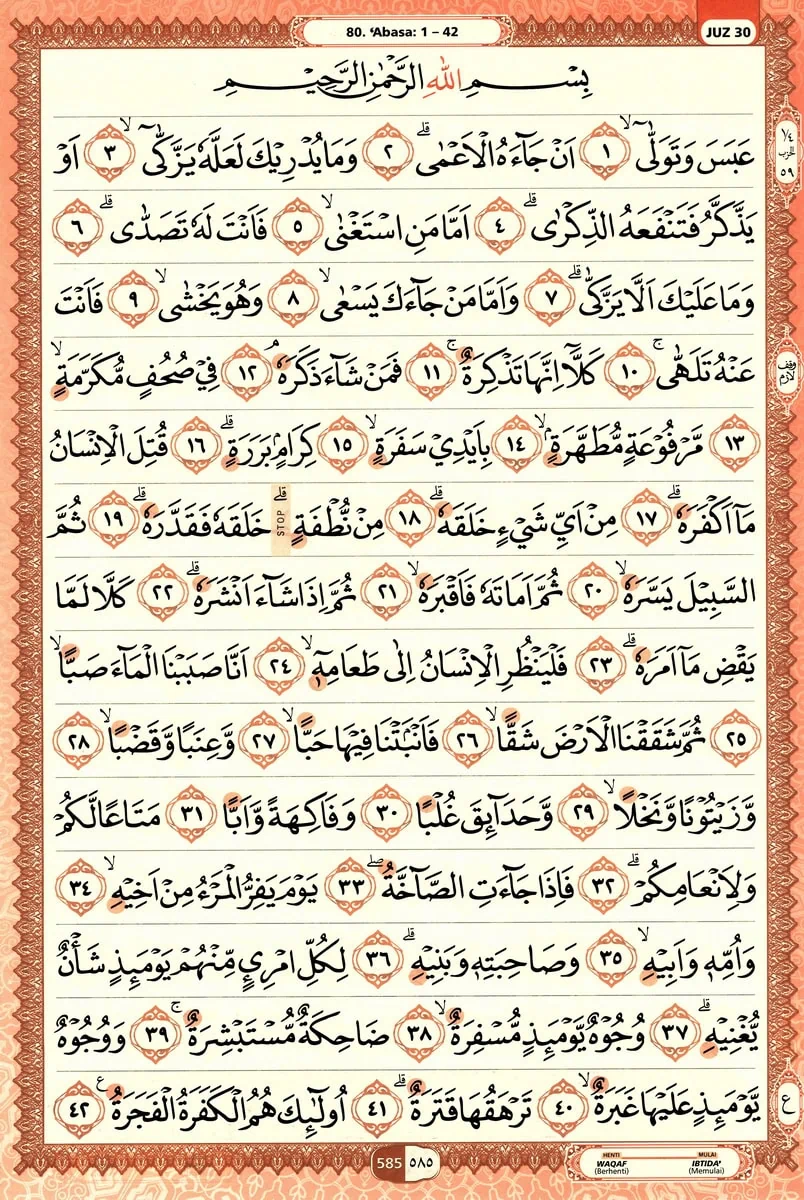 80. ‘Abasa: 1 – 42
JUZ 30
بِسْمِ اللّٰهِ الرَّحْمٰنِ الرَّحِيْمِ
١/٤
الحزب
٥٩
عَبَسَ وَتَوَلّٰىٓ ۙ ١ اَنْ جَاۤءَهُ الْاَعْمٰى ۗ ٢ وَمَا يُدْرِيْكَ لَعَلَّهٗ يَزَّكّٰىٓ ۙ ٣ اَوْ
يَذَّكَّرُ فَتَنْفَعَهُ الذِّكْرٰى ۗ ٤ اَمَّا مَنِ اسْتَغْنٰى ۙ ٥ فَاَنْتَ لَهٗ تَصَدّٰى ۗ ٦
وَمَا عَلَيْكَ اَلَّا يَزَّكّٰى ۗ ٧ وَاَمَّا مَنْ جَاۤءَكَ يَسْعٰى ۙ ٨ وَهُوَ يَخْشٰى ۙ ٩ فَاَنْتَ
عَنْهُ تَلَهّٰى ۚ ١٠ كَلَّآ اِنَّهَا تَذْكِرَةٌ ۚ ١١ فَمَنْ شَاۤءَ ذَكَرَهٗ ۘ ١٢ فِيْ صُحُفٍ مُّكَرَّمَةٍ ۙ
وقف
لازم
١٣ مَّرْفُوْعَةٍ مُّطَهَّرَةٍ ۢ ۙ ١٤ بِاَيْدِيْ سَفَرَةٍ ۙ ١٥ كِرَامٍ ۢ بَرَرَةٍ ۗ ١٦ قُتِلَ الْاِنْسَانُ
مَآ اَكْفَرَهٗ ۗ ١٧ مِنْ اَيِّ شَيْءٍ خَلَقَهٗ ۗ ١٨ مِنْ نُّطْفَةٍ ۗ STOP خَلَقَهٗ فَقَدَّرَهٗ ۗ ١٩ ثُمَّ
السَّبِيْلَ يَسَّرَهٗ ۙ ٢٠ ثُمَّ اَمَاتَهٗ فَاَقْبَرَهٗ ۙ ٢١ ثُمَّ اِذَا شَاۤءَ اَنْشَرَهٗ ۗ ٢٢ كَلَّا لَمَّا
يَقْضِ مَآ اَمَرَهٗ ۗ ٢٣ فَلْيَنْظُرِ الْاِنْسَانُ اِلٰى طَعَامِهٖٓ ۙ ٢٤ اَنَّا صَبَبْنَا الْمَاۤءَ صَبًّا ۙ
٢٥ ثُمَّ شَقَقْنَا الْاَرْضَ شَقًّا ۙ ٢٦ فَاَنْۢبَتْنَا فِيْهَا حَبًّا ۙ ٢٧ وَّعِنَبًا وَّقَضْبًا ۙ ٢٨
وَّزَيْتُوْنًا وَّنَخْلًا ۙ ٢٩ وَّحَدَاۤىِٕقَ غُلْبًا ٣٠ وَفَاكِهَةً وَّاَبًّا ٣١ مَتَاعًا لَّكُمْ
وَلِاَنْعَامِكُمْ ۗ ٣٢ فَاِذَا جَاۤءَتِ الصَّاۤخَّةُ ۖ ٣٣ يَوْمَ يَفِرُّ الْمَرْءُ مِنْ اَخِيْهِ ۙ ٣٤
وَاُمِّهٖ وَاَبِيْهِ ۙ ٣٥ وَصَاحِبَتِهٖ وَبَنِيْهِ ۗ ٣٦ لِكُلِّ امْرِئٍ مِّنْهُمْ يَوْمَىِٕذٍ شَأْنٌ
يُّغْنِيْهِ ۗ ٣٧ وُجُوْهٌ يَّوْمَىِٕذٍ مُّسْفِرَةٌ ۙ ٣٨ ضَاحِكَةٌ مُّسْتَبْشِرَةٌ ۚ ٣٩ وَوُجُوْهٌ
يَّوْمَىِٕذٍ عَلَيْهَا غَبَرَةٌ ۙ ٤٠ تَرْهَقُهَا قَتَرَةٌ ۗ ٤١ اُولٰۤىِٕكَ هُمُ الْكَفَرَةُ الْفَجَرَةُ ࣖ ٤٢
ع
585 ٥٨٥
HENTI MULAI
WAQAF IBTIDA'
(Berhenti) (Memulai)